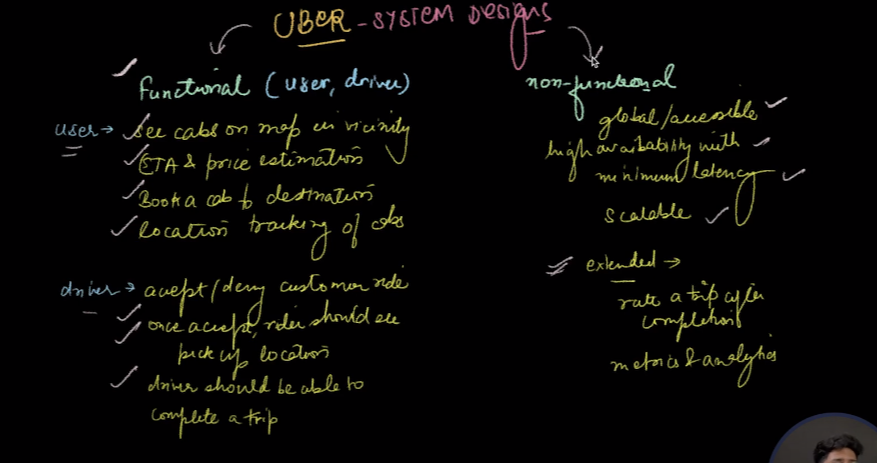 UBER - SYSTEM Designs
functional (user, driver)
user → see cabs on map in vicinity
ETA & price estimation
Book a cab to destination
location tracking of cabs
driver → acept/deny customer ride
once acept, rider should see
pick up location
driver should be able to
complete a trip
non-functional
global/accessible
high availability with
minimum latency
scalable
extended →
rate a trip after
completion
metrics & analytics